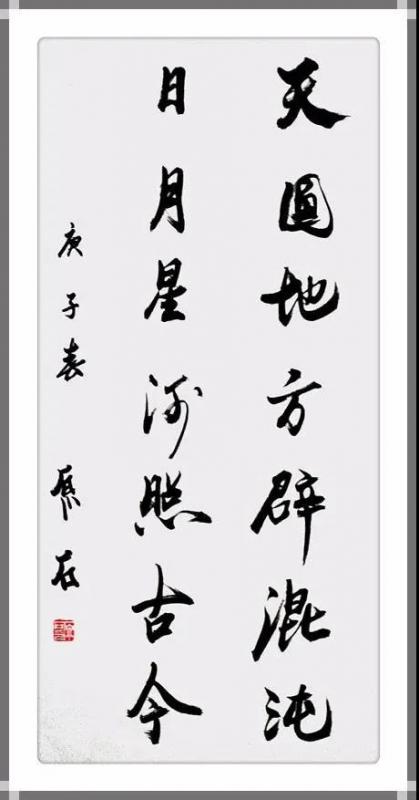 天圆地方辟混沌
日月星河照古今
庚子春